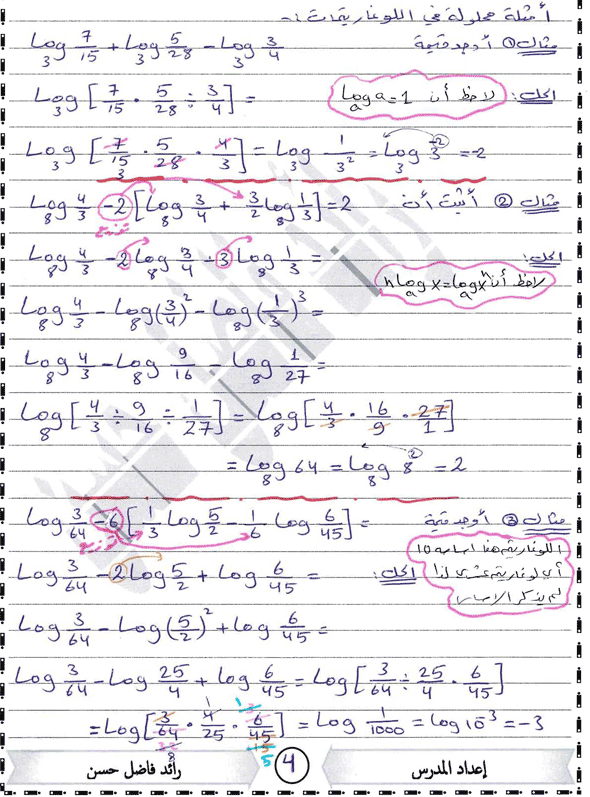 أمثلة محلولة في اللوغاريتمات :-
مثال ① أوجد قيمة
log₃ 7/15 + log₃ 5/28 − log₃ 3/4
الحل: لاحظ أن logₐ a = 1
log₃ [7/15 · 5/28 ÷ 3/4] =
log₃ [7/15 · 5/28 · 4/3] = log₃ 1/3² = log₃ 3⁻² = -2
مثال ② أثبت أن
log₈ 4/3 − 2[log₈ 3/4 + 3/2 log₈ 1/3] = 2
توزيع
الحل:
log₈ 4/3 − 2 log₈ 3/4 − 3 log₈ 1/3 =
لاحظ أن n logₐ x = logₐ xⁿ
log₈ 4/3 − log₈ (3/4)² − log₈ (1/3)³ =
log₈ 4/3 − log₈ 9/16 − log₈ 1/27 =
log₈ [4/3 ÷ 9/16 ÷ 1/27] = log₈ [4/3 · 16/9 · 27/1]
= log₈ 64 = log₈ 8² = 2
مثال ③ أوجد قيمة
log 3/64 − 6[1/3 log 5/2 − 1/6 log 6/45] =
توزيع
اللوغاريتم هنا اساسه 10
أي لوغاريتم عشري لذا
لم يذكر الاساس
الحل:
log 3/64 − 2 log 5/2 + log 6/45 =
log 3/64 − log (5/2)² + log 6/45 =
log 3/64 − log 25/4 + log 6/45 = log [3/64 ÷ 25/4 · 6/45]
= log [3/64 · 4/25 · 6/45] = log 1/1000 = log 10⁻³ = -3
إعداد المدرس
4
رائد فاضل حسن